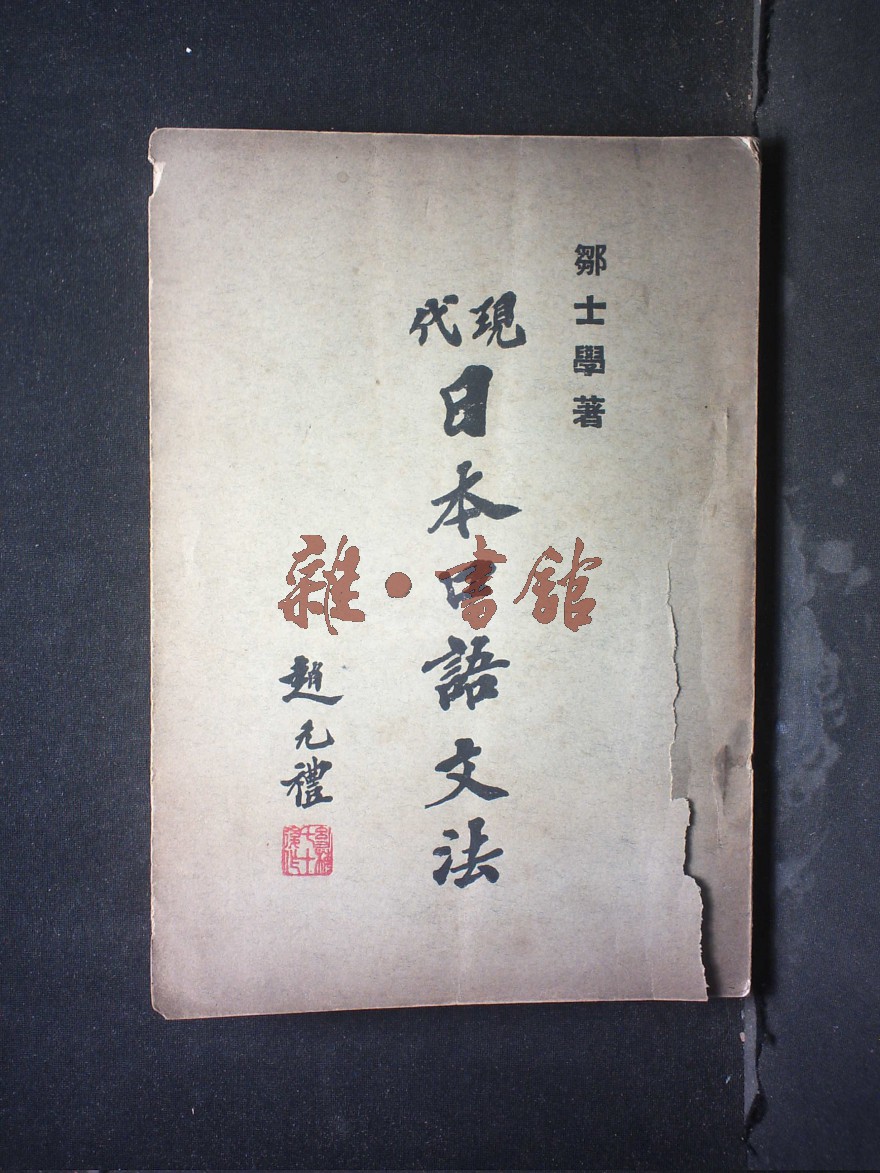 鄒士學著
現代
日本口語文法
趙元禮
雜·書館